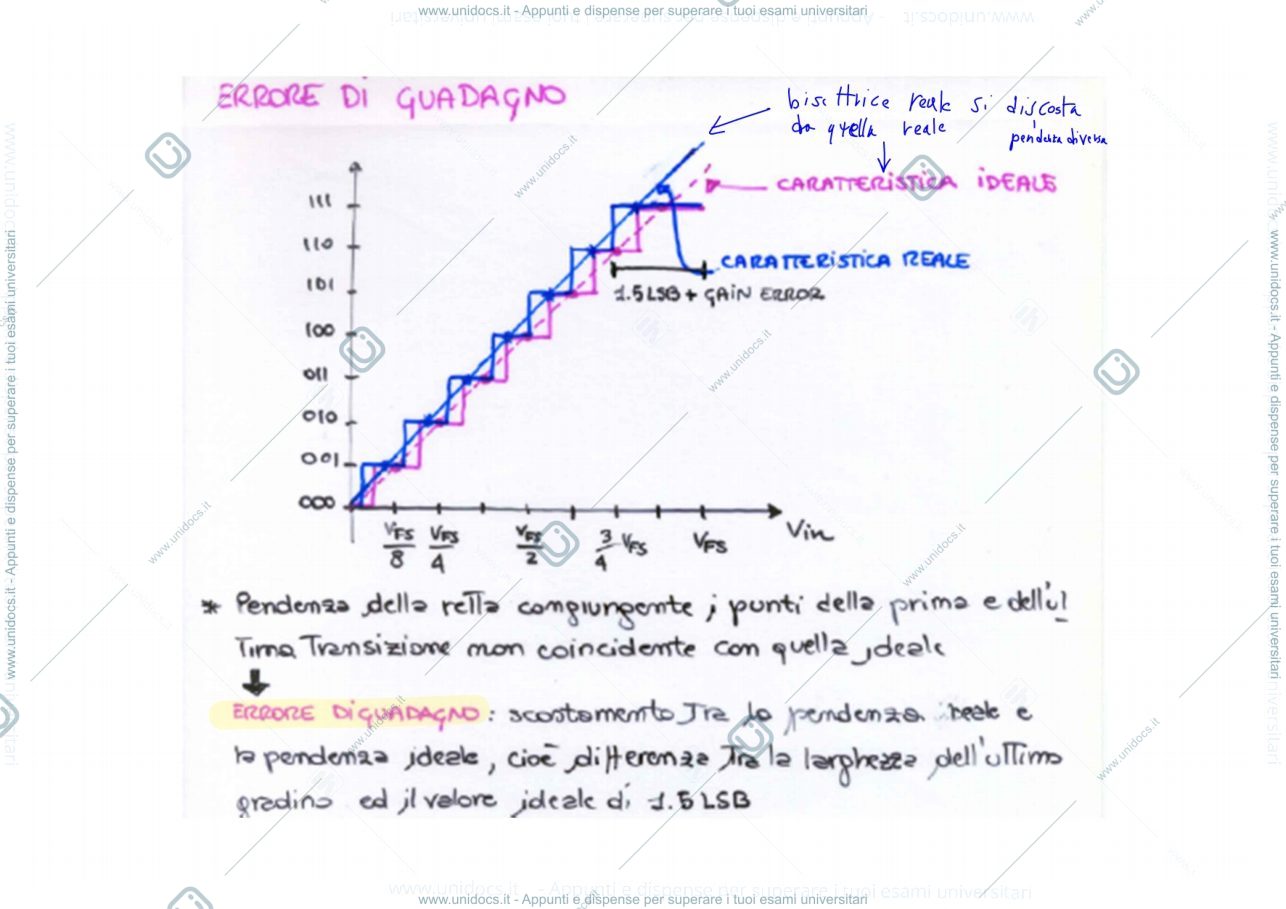 www.unidocs.it - Appunti e dispense per superare i tuoi esami universitari
ERRORE DI GUADAGNO
bisettrice reale si discosta
da quella reale
pendenza diversa
CARATTERISTICA IDEALE
111
110
CARATTERISTICA REALE
101
1.5 LSB + GAIN ERROR
100
011
010
001
000
VFS/8 VFS/4 VFS/2 3/4 VFS VFS Vin
* Pendenza della retta congiungente i punti della prima e dell'ul
tima Transizione non coincidente con quella ideale
ERRORE DI GUADAGNO: scostamento Tra la pendenza reale e
la pendenza ideale, cioè differenza Tra la larghezza dell'ultimo
gradino ed il valore ideale di 1.5 LSB
www.unidocs.it - Appunti e dispense per superare i tuoi esami universitari
www.unidocs.it - Appunti e dispense per superare i tuoi esami universitari
www.unidocs.it - Appunti e dispense per superare i tuoi esami universitari
www.unidocs.it
www.unidocs.it
www.unidocs.it
www.unidocs.it
www.unidocs.it
www.unidocs.it